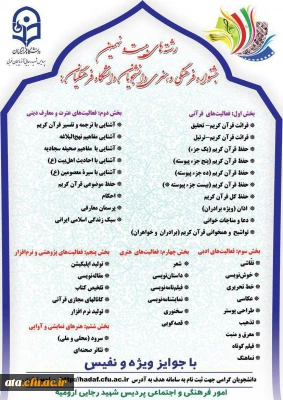 رشته‌های بیست و نهمین
جشنواره فرهنگی و هنری دانشجویان دانشگاه فرهنگیان:
دانشگاه فرهنگیان
بخش اول: فعالیت‌های قرآنی
قرائت قرآن کریم- تحقیق
قرائت قرآن کریم-ترتیل
حفظ قرآن کریم (یک جزء)
حفظ قرآن کریم (پنج جزء پیوسته)
حفظ قرآن کریم (ده جزء پیوسته)
حفظ قرآن کریم (بیست جزء پیوسته)
حفظ کل قرآن کریم
اذان (ویژه برادران)
دعا و مناجات خوانی
تواشیح و همخوانی قرآن کریم (برادران و خواهران)
بخش دوم: فعالیت‌های عترت و معارف دینی
آشنایی با ترجمه و تفسیر قرآن کریم
آشنایی با مفاهیم نهج‌البلاغه
آشنایی با مفاهیم صحیفه سجادیه
آشنایی با احادیث اهل‌بیت (ع)
آشنایی با سیرهٔ معصومین (ع)
حفظ موضوعی قرآن کریم
احکام
پرسمان معارفی
سبک زندگی اسلامی ایرانی
بخش سوم: فعالیت‌های ادبی
نقاشی
خوش‌نویسی
خط تحریری
عکاسی
طراحی پوستر
تذهیب
معرق و منبت
فیلم کوتاه
نماهنگ
بخش چهارم: فعالیت‌های هنری
شعر
داستان‌نویسی
فیلم‌نامه‌نویسی
نمایشنامه‌نویسی
سخنوری
قصه‌گویی
بخش پنجم: فعالیت‌های پژوهشی و نرم‌افزار
تولید اپلیکیشن
مقاله‌نویسی
تلخیص کتاب
کانالهای مجازی قرآنی
تولید نرم افزار
بخش ششم: هنرهای نمایشی و آوایی
سرود (محلی و ملی)
تئاتر صحنه‌ای
با جوایز ویژه و نفیس
دانشجویان گرامی جهت ثبت نام به سامانه هدف به آدرس http://hadaf.cfu.ac.ir
امور فرهنگی و اجتماعی پردیس شهید رجایی ارومیه
ata.cfu.ac.ir